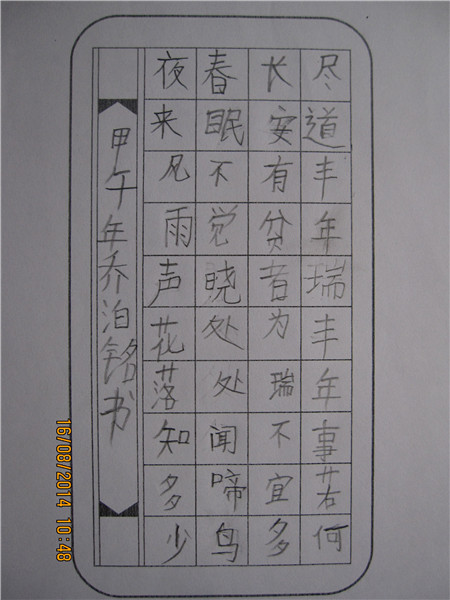 尽道丰年瑞丰年事若何
长安有贫者为瑞不宜多
春眠不觉晓处处闻啼鸟
夜来风雨声花落知多少
甲午年乔泊铭书
16/08/2014 10:48